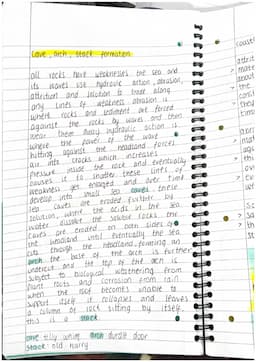 Cave, arch, stack formation
all rocks have weaknesses the sea and
its waves use hydraulic action, abrasion,
attrition and solution to break along
any lines of weakness. abrasion is
where rocks and sediment are forced
against the rocks by waves and then
wear them away. hydraulic action is
where the power of the wave
hitting against the headland forces
air into cracks which increases
pressure inside the rock and eventually
causes it to shatter these lines of
weakness get enlarged and over time
develop into small sea caves. these
sea caves are eroded further by
solution, where the acids in the sea
water dissolve the soluble rocks. the
caves are eroded on both sides of
the headland until eventually the sea
cuts through the headland, forming an
arch. the base of the arch is further
undercut and the top of the arch is
subject to biological weathering from
plant roots and corrosion from rain
when the roof becomes unable to
support itself it collapses and leaves
a column of rock sitting by itself,
this is a stack.
cave tilly whim arch durdle door
stack old harry
coast
attrit